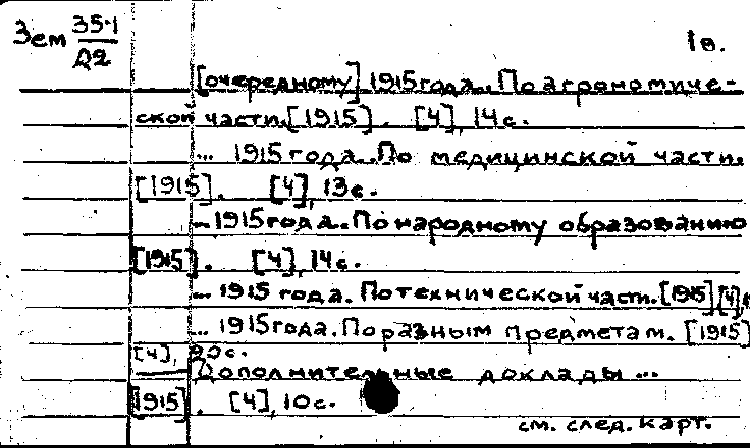 Зем 35·1
Д2
1в.
[очередному] 1915 года... По агрономиче-
ской части. [1915]. [4], 14 с.
... 1915 года. По медицинской части.
[1915]. [4], 13 с.
... 1915 года. По народному образованию
[1915]. [4], 14 с.
... 1915 года. По технической части. [1915] [4],
... 1915 года. По разным предметам. [1915]
[4], с.
Дополнительные доклады ...
[1915]. [4], 10 с.
см. след. карт.